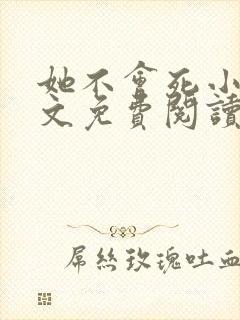 她不會死小
文免費閱讀
屌絲玫瑰吐血